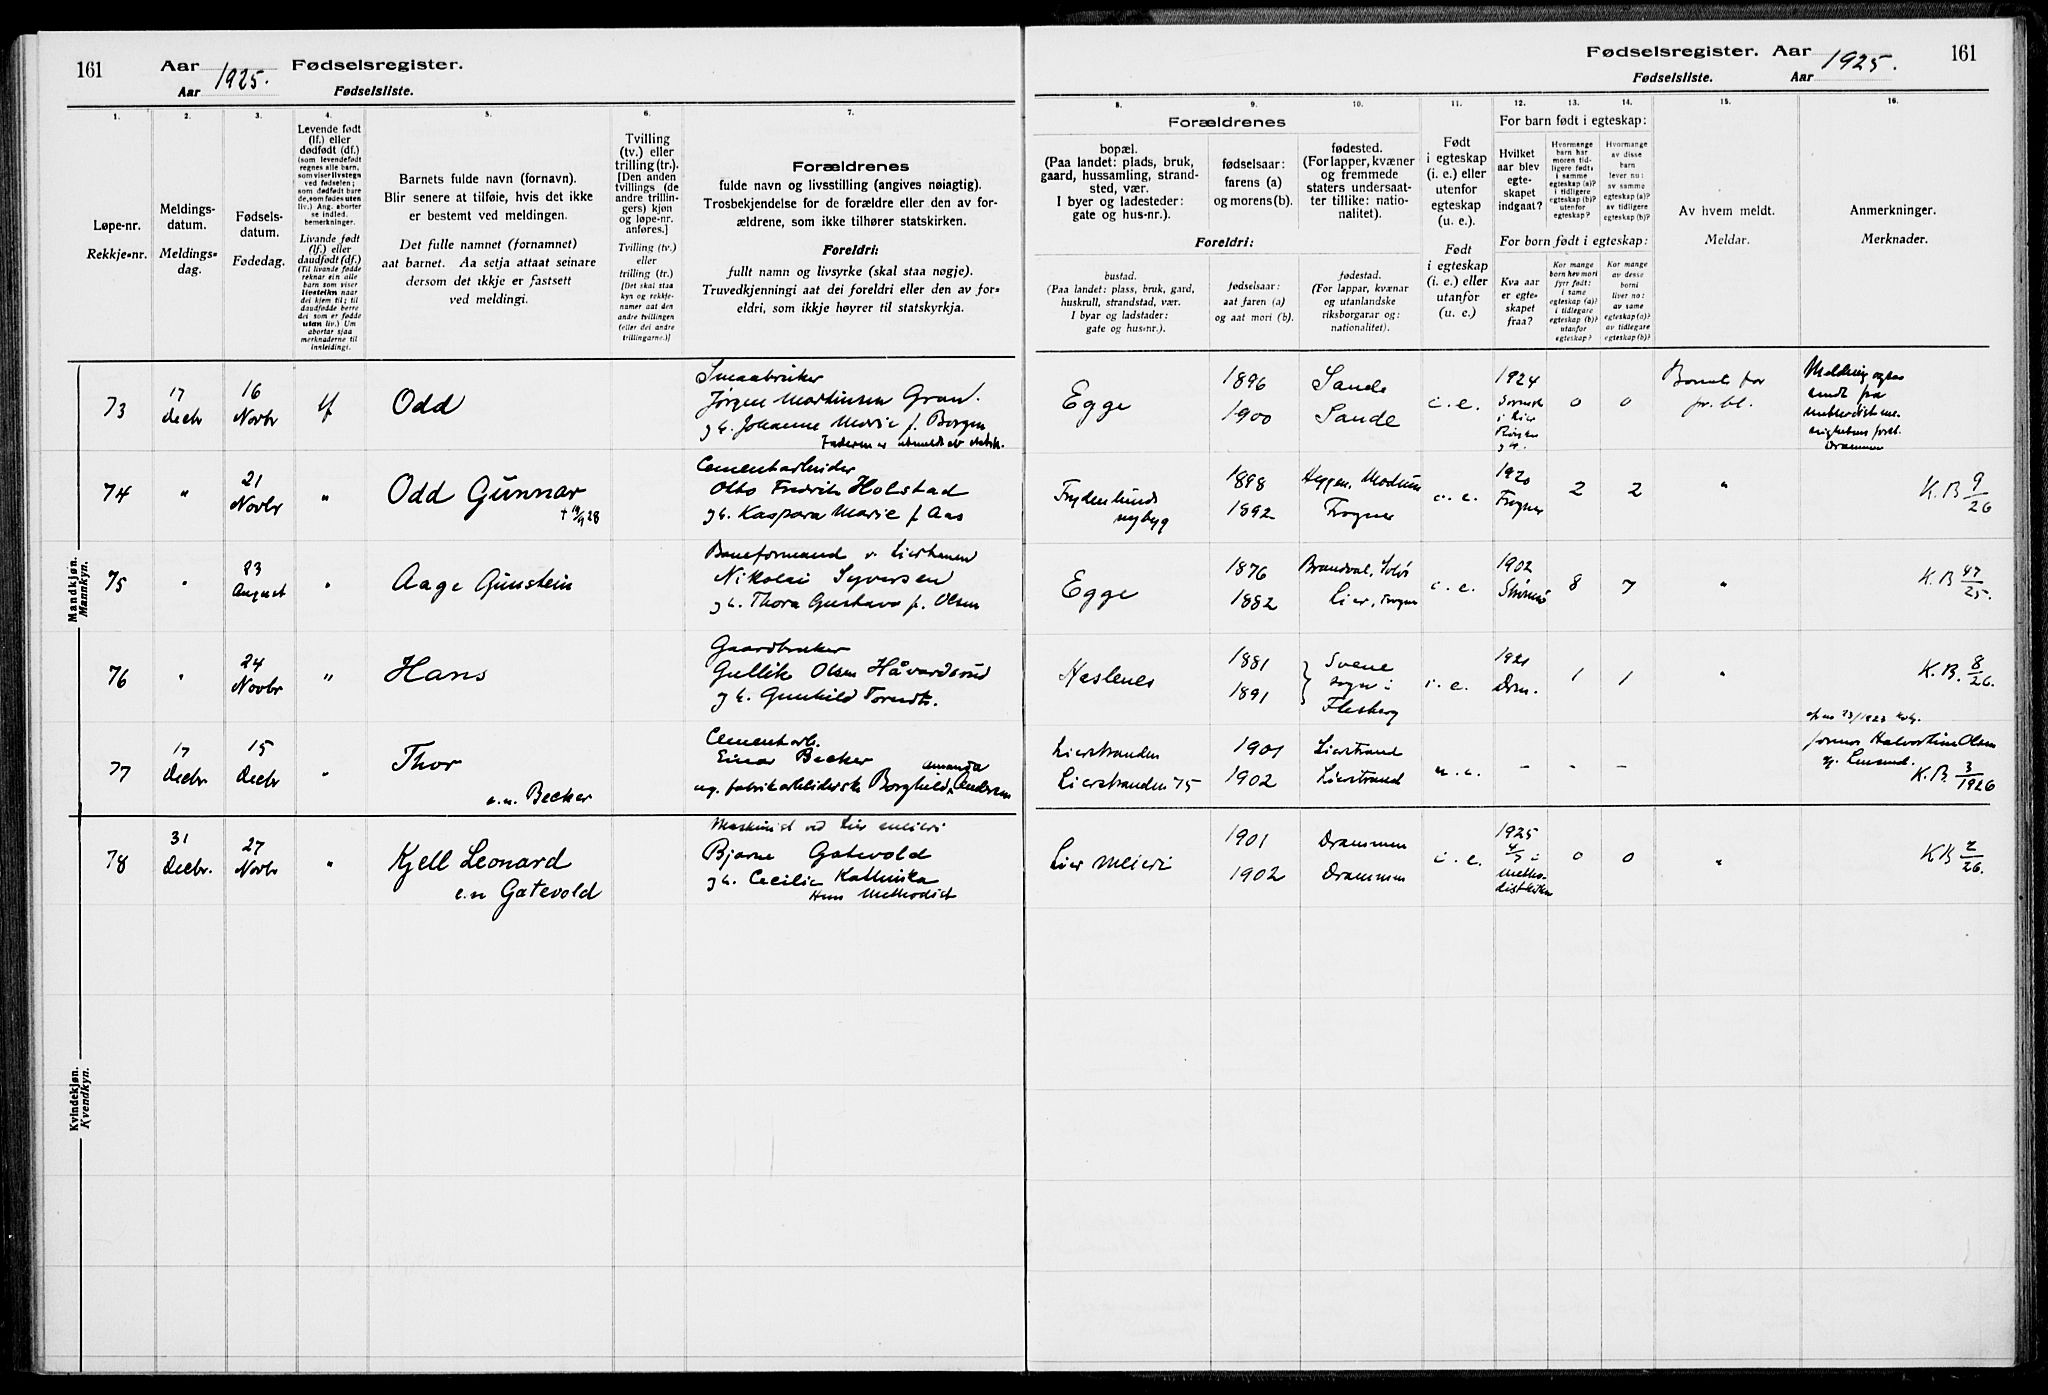 161 Aar 1925. Fødselsregister.
Aar Fødselsliste.
Fødselsregister. Aar 1925. 161
Fødselsliste. Aar
1. 2. 3. 4. 5. 6. 7.
Løpe-nr.
Rekkje-nr.
Meldings-
datum.
Meldings-
dag.
Fødsels-
datum.
Fødedag.
Levende født
(lf.) eller
dødfødt (df.)
(som levendefødt
regnes alle barn,
som viser livstegn
ved fødselen;
som dødfødt bare
de, som fødes uten
liv.) Ang. aborter
se indled.
bemerkninger.
Livande født
(lf.) eller
daudfødt (df.)
(Til livande fødde
reknar ein alle
barn som viser
livsteikn naar
dei kjem til; til
daudfødde berre
dei som er fødde
utan liv.) Um
abortar sjaa
merknaderne til
innleidingi.
Barnets fulde navn (fornavn).
Blir senere at tilføie, hvis det ikke
er bestemt ved meldingen.
Det fulle namnet (fornamnet)
aat barnet. Aa setja attaat seinare
dersom det ikkje er fastsett
ved meldingi.
Tvilling
(tv.) eller
trilling (tr.).
[Den anden
tvillings (de
andre trillin-
gers) kjøn
og løpe-nr.
anføres.]
Tvilling (tv.)
eller
trilling (tr.)
[Det skal staa
kyn og rekkje-
namer aat den
andre tvillingen
(eller dei andre
trillingarne.)]
Forældrenes
fulde navn og livsstilling (angives nøiagtig).
Trosbekjendelse for de forældre eller den av for-
ældrene, som ikke tilhører statskirken.
Foreldri:
fullt namn og livsyrke (skal staa nøgje).
Truvedkjenningi aat dei foreldri eller den av for-
eldri, som ikkje høyrer til statskyrkja.
8. 9. 10. 11. 12. 13. 14. 15. 16.
Forældrenes
bopæl.
(Paa landet: plads, bruk,
gaard, hussamling, strand-
sted, vær.
I byer og ladesteder:
gate og hus-nr.).
fødselsaar:
farens (a)
og morens (b).
fødested.
(For lapper, kvæner
og fremmede
staters undersaat-
ter tillike: natio-
nalitet).
Foreldri:
bustad.
(Paa landet: plass, bruk, gard,
huskrull, strandstad, vær.
I byar og ladstader:
gate og hus-nr.).
fødselsaar:
aat faren (a)
og aat mori (b).
fødestad.
(For lappar, kvænar
og utanlandske
riksborgarar og:
nationalitet).
Født
i egteskap
(i. e.) eller
utenfor
egteskap
(u. e.).
Født
i egteskap
(i. e.) eller
utanfor
(u. e.)
For barn født i egteskap:
Hvilket
aar blev
egte-
skapet
indgaat?
Hvormange
barn har
moren tid-
ligere født:
i samme
egteskap (a)?
i tidligere
egteskap (b)?
utenfor
egteskap?
Hvormange
av disse
barn
lever nu:
av samme
egteskap (a)?
av tidligere
egteskap (b)?
For born født i egteskap:
Kva aar
er egte-
skapet
fraa?
Kor mange
born hev mori
fyrr født:
i same
egteskap (a)?
i tidlegare
egteskap (b)?
utanfor
egteskap?
Kor mange
av desse
borni
liver no:
av same
egteskap (a)?
av tidlegare
egteskap (b)?
Av hvem meldt.
Meldar.
Anmerkninger.
Merknader.
Mandkjøn.
Mannkyn.
73 17 Decbr 16 Novbr lf Odd
Smaabruker
Jørgen Martinsen Gran.
g h. Johanne Marie f. Borgen
Faderen er utmeldt av statsk.
Egge 1896 Sande
1900 Sande
i. e. 1924 i Lier 0 0
Barnets far
Melding ogsaa
sendt fra
Drammen
74 " 21 Novbr " Odd Gunnar
+ 19/9 28
Cementarbeider
Otto Fredrik Holstad
g h. Kaspara Marie f Aas
Frydenlund
nybyg
1898 Heggen, Modum
1892 Frogner
i. e. 1920 Frogner 2 2 " K. B 9/26
75 " 23 August " Aage Gunstein
Baneformand v. Lierbanen
Nikolai Syversen
g h. Thora Gustava f. Olsen
Egge 1876 Brandval, Solør
1882 Lier, Frogner
i. e. 1902 8 7 " K. B 47/25.
76 " 24 Novbr " Hans
Gaardbruker
Gullik Olsen Håvardsrud
g h. Gunhild Torsdt.
1881 Svene
1891 sogn i
Flesberg
i. e. 1921 Drm. 1 1 " K. B. 8/26.
77 17 Decbr 15 Decbr " Thor
e. n. Becker
Cementarb.
Einar Becker
ug. fabrikarbeiderske Borghild Amanda Andersen
Lierstranden 1901 Lierstrand
Lierstranden 75 1902 Lierstrand
u. e. – – – "
K. B 3/1926
78 31 Decbr. 27 Novbr " Kjell Leonard
e. n Gatevold
Maskinist ved Lier meieri
Bjarne Gatevold
g h. Cecilie Kathinka
Hun Methodist
Lier Meieri 1901 Drammen
1902 Drammen
i. e. 1925
4/7 i
Metho-
distkirken
0 0 " K B 2/26.
Kvindekjøn.
Kvendkyn.